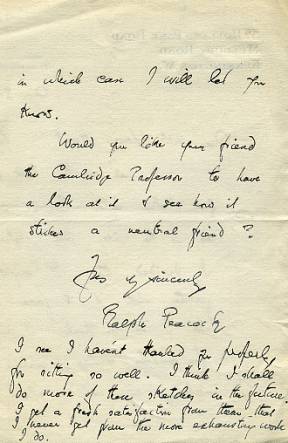 in which case I will let you
know.
Would you like your friend
the Cambridge Professor to have
a look at it & see how it
strikes a neutral friend?
Yrs sincerely
Ralph Peacock
I see I havent thanked you properly
for sitting so well. I think I shall
do more of these sketches in the future.
I get a fresh satisfaction from them that
I never get from the more exhausting work
I do.